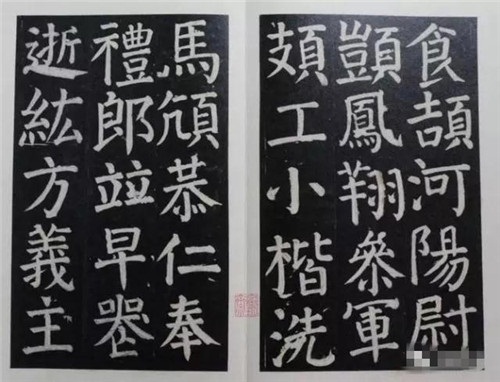 食頡河陽尉
顗鳳翔叅軍
頍工小楷洗
馬恭仁奉
禮郎竝早
逝紘方義主